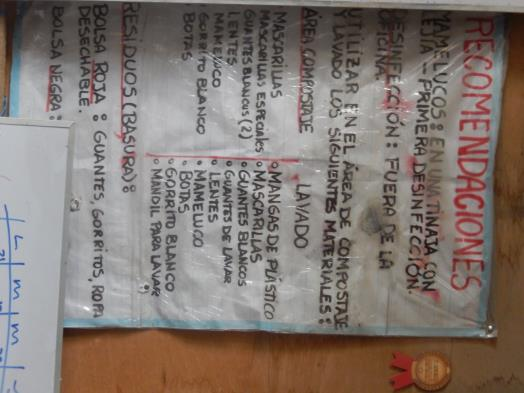 RECOMENDACIONES
MAMELUCOS: EN UNA TINAJA CON
LEJÍA - PRIMERA DESINFECCIÓN.
DESINFECCIÓN: FUERA DE LA
OFICINA.
UTILIZAR EN EL AREA DE COMPOSTAJE
Y LAVADO LOS SIGUIENTES MATERIALES:
ÁREA COMPOSTAJE
MASCARILLAS
MASCARILLAS ESPECIALES
GUANTES BLANCOS (2)
LENTES
MAMELUCO
GORRITO BLANCO
BOTAS
LAVADO
MANGAS DE PLÁSTICO
MASCARILLAS
GUANTES BLANCOS
GUANTES DE LAVAR
LENTES
MAMELUCO
BOTAS
GORRITO BLANCO
MANDIL PARA LAVAR
RESIDUOS (BASURA):
BOLSA ROJA: GUANTES, GORRITOS, ROPA
DESECHABLE.
BOLSA NEGRA:
L M M